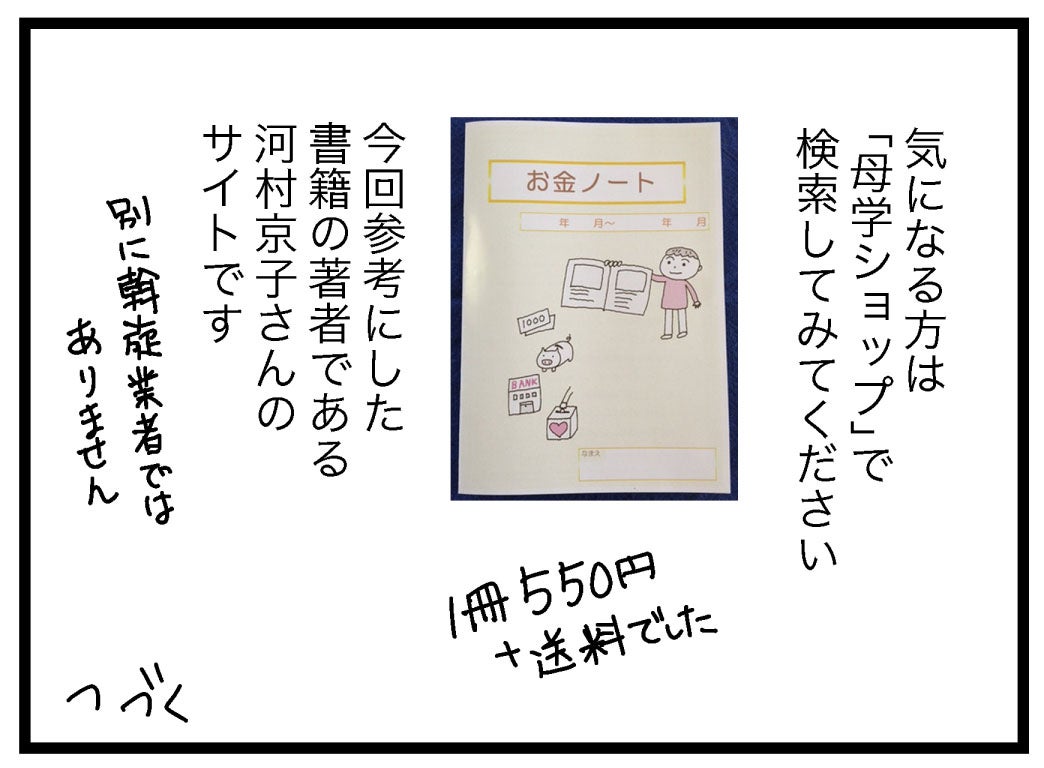 気になる方は
「母学ショップ」で
検索してみてください
お金ノート
年 月〜 年 月
1000
BANK
なまえ
1冊550円
+送料でした
今回参考にした
書籍の著者である
河村京子さんの
サイトです
別に斡旋業者では
ありません
つづく